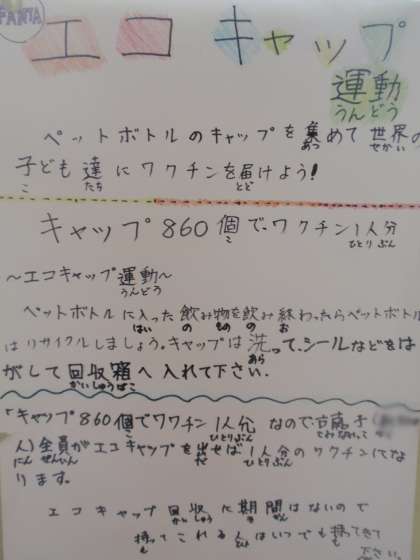 FANTA
エコキャップ
運動
うんどう
ペットボトルのキャップを集めて世界の
あつ せかい
子ども達にワクチンを届けよう!
こ たち とど
キャップ860個で、ワクチン1人分
こ ひとり ぶん
〜エコキャップ運動〜
うんどう
ペットボトルに入った飲み物を飲み終わったらペットボトル
はい の もの の お
はリサイクルしましょう。キャップは洗って、シールなどをは
あら
がして回収箱へ入れて下さい.
かいしゅうばこ
「キャップ860個でワクチン1人分なので
こ ひとりぶん
人)全員がエコキャップを出せば1人分のワクチンにな
にん ぜんいん だ ひとりぶん
ります。
エコキャップ回収に期間はないので
かいしゅう き かん
持ってこれる人はいつでも持ってきて
も ひと も
下さい。